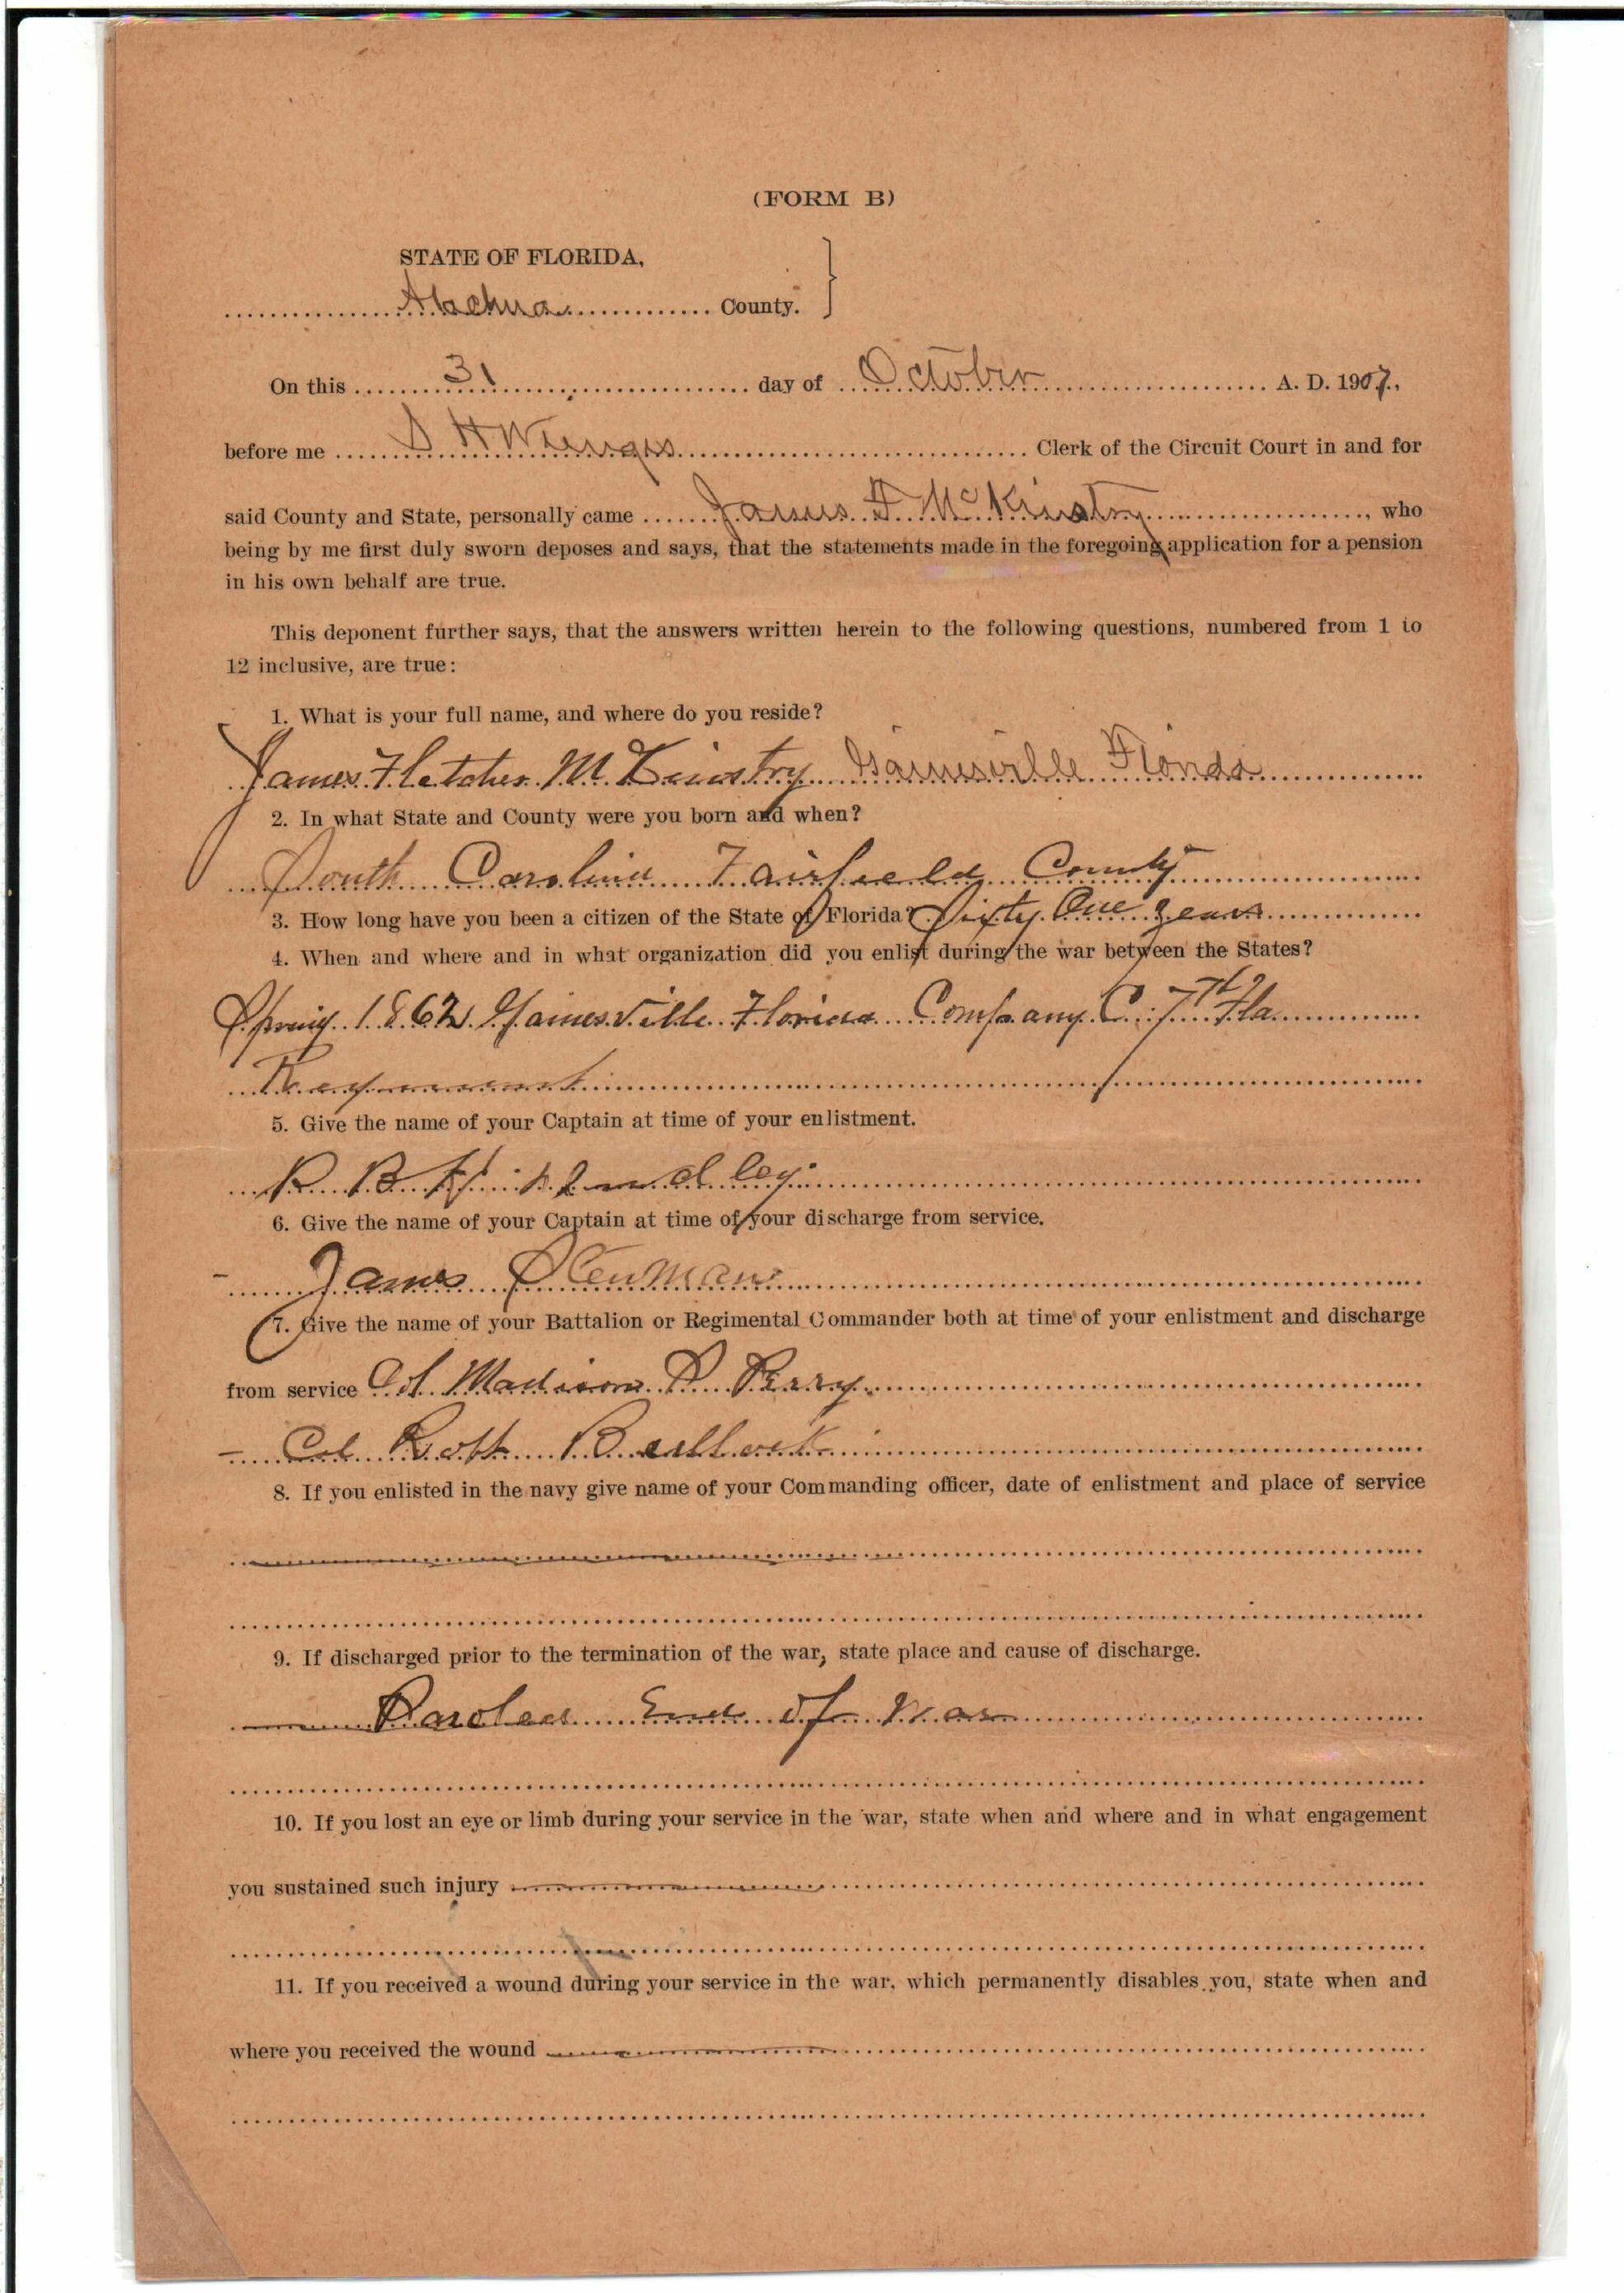 (FORM B)
STATE OF FLORIDA,
Alachua County.
On this 31 day of October A. D. 1907,
before me S H Wienges Clerk of the Circuit Court in and for
said County and State, personally came James F. McKinstry, who
being by me first duly sworn deposes and says, that the statements made in the foregoing application for a pension
in his own behalf are true.
This deponent further says, that the answers written herein to the following questions, numbered from 1 to
12 inclusive, are true:
1. What is your full name, and where do you reside?
James Fletcher McKinstry Gainesville Florida
2. In what State and County were you born and when?
South Carolina Fairfield County
3. How long have you been a citizen of the State of Florida? Sixty One years
4. When and where and in what organization did you enlist during the war between the States?
Spring 1862 Gainesville Florida Company C. 7th Fla
Regiment
5. Give the name of your Captain at time of your enlistment.
R. B.
6. Give the name of your Captain at time of your discharge from service.
James
7. Give the name of your Battalion or Regimental Commander both at time of your enlistment and discharge
from service Col. Madison S. Perry
Col Robt Bullock
8. If you enlisted in the navy give name of your Commanding officer, date of enlistment and place of service
9. If discharged prior to the termination of the war, state place and cause of discharge.
Paroled End of War
10. If you lost an eye or limb during your service in the war, state when and where and in what engagement
you sustained such injury
11. If you received a wound during your service in the war, which permanently disables you, state when and
where you received the wound